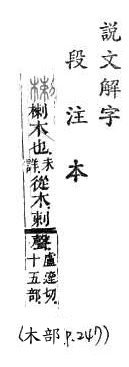 說文解字
段注本
楋 楋木也未詳從木剌聲盧達切十五部
(木部 P.247)